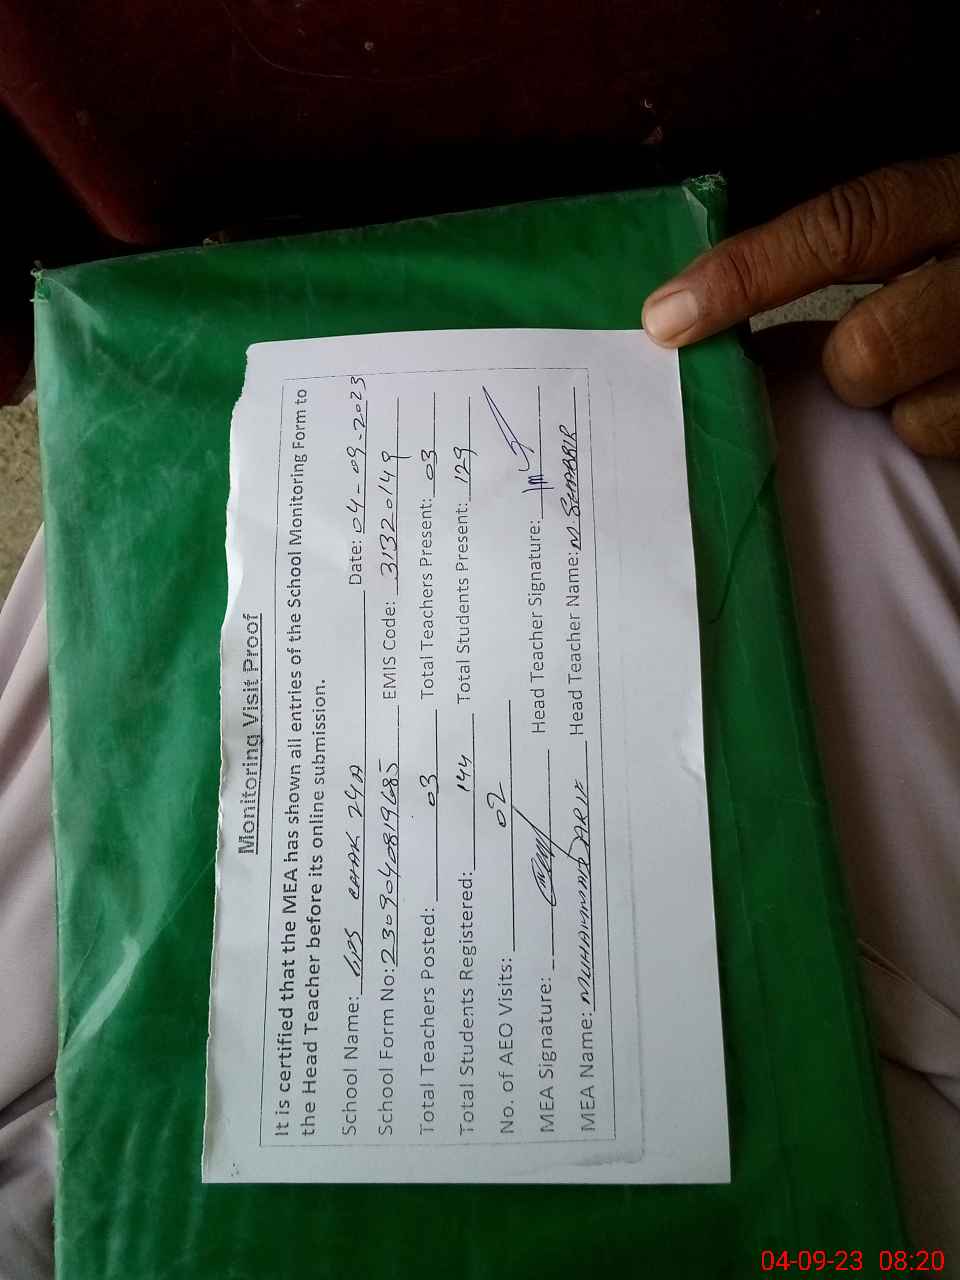 Monitoring Visit Proof
It is certified that the MEA has shown all entries of the School Monitoring Form to
the Head Teacher before its online submission.
School Name: GPS CHAK 24A Date: 04-09-2023
School Form No: 2309040819685 EMIS Code: 31320149
Total Teachers Posted: 03 Total Teachers Present: 03
Total Students Registered: 144 Total Students Present: 129
No. of AEO Visits: 02
MEA Signature: Head Teacher Signature:
MEA Name: MUHAMMAD Head Teacher Name: M. SHABBIR
04-09-23 08:20